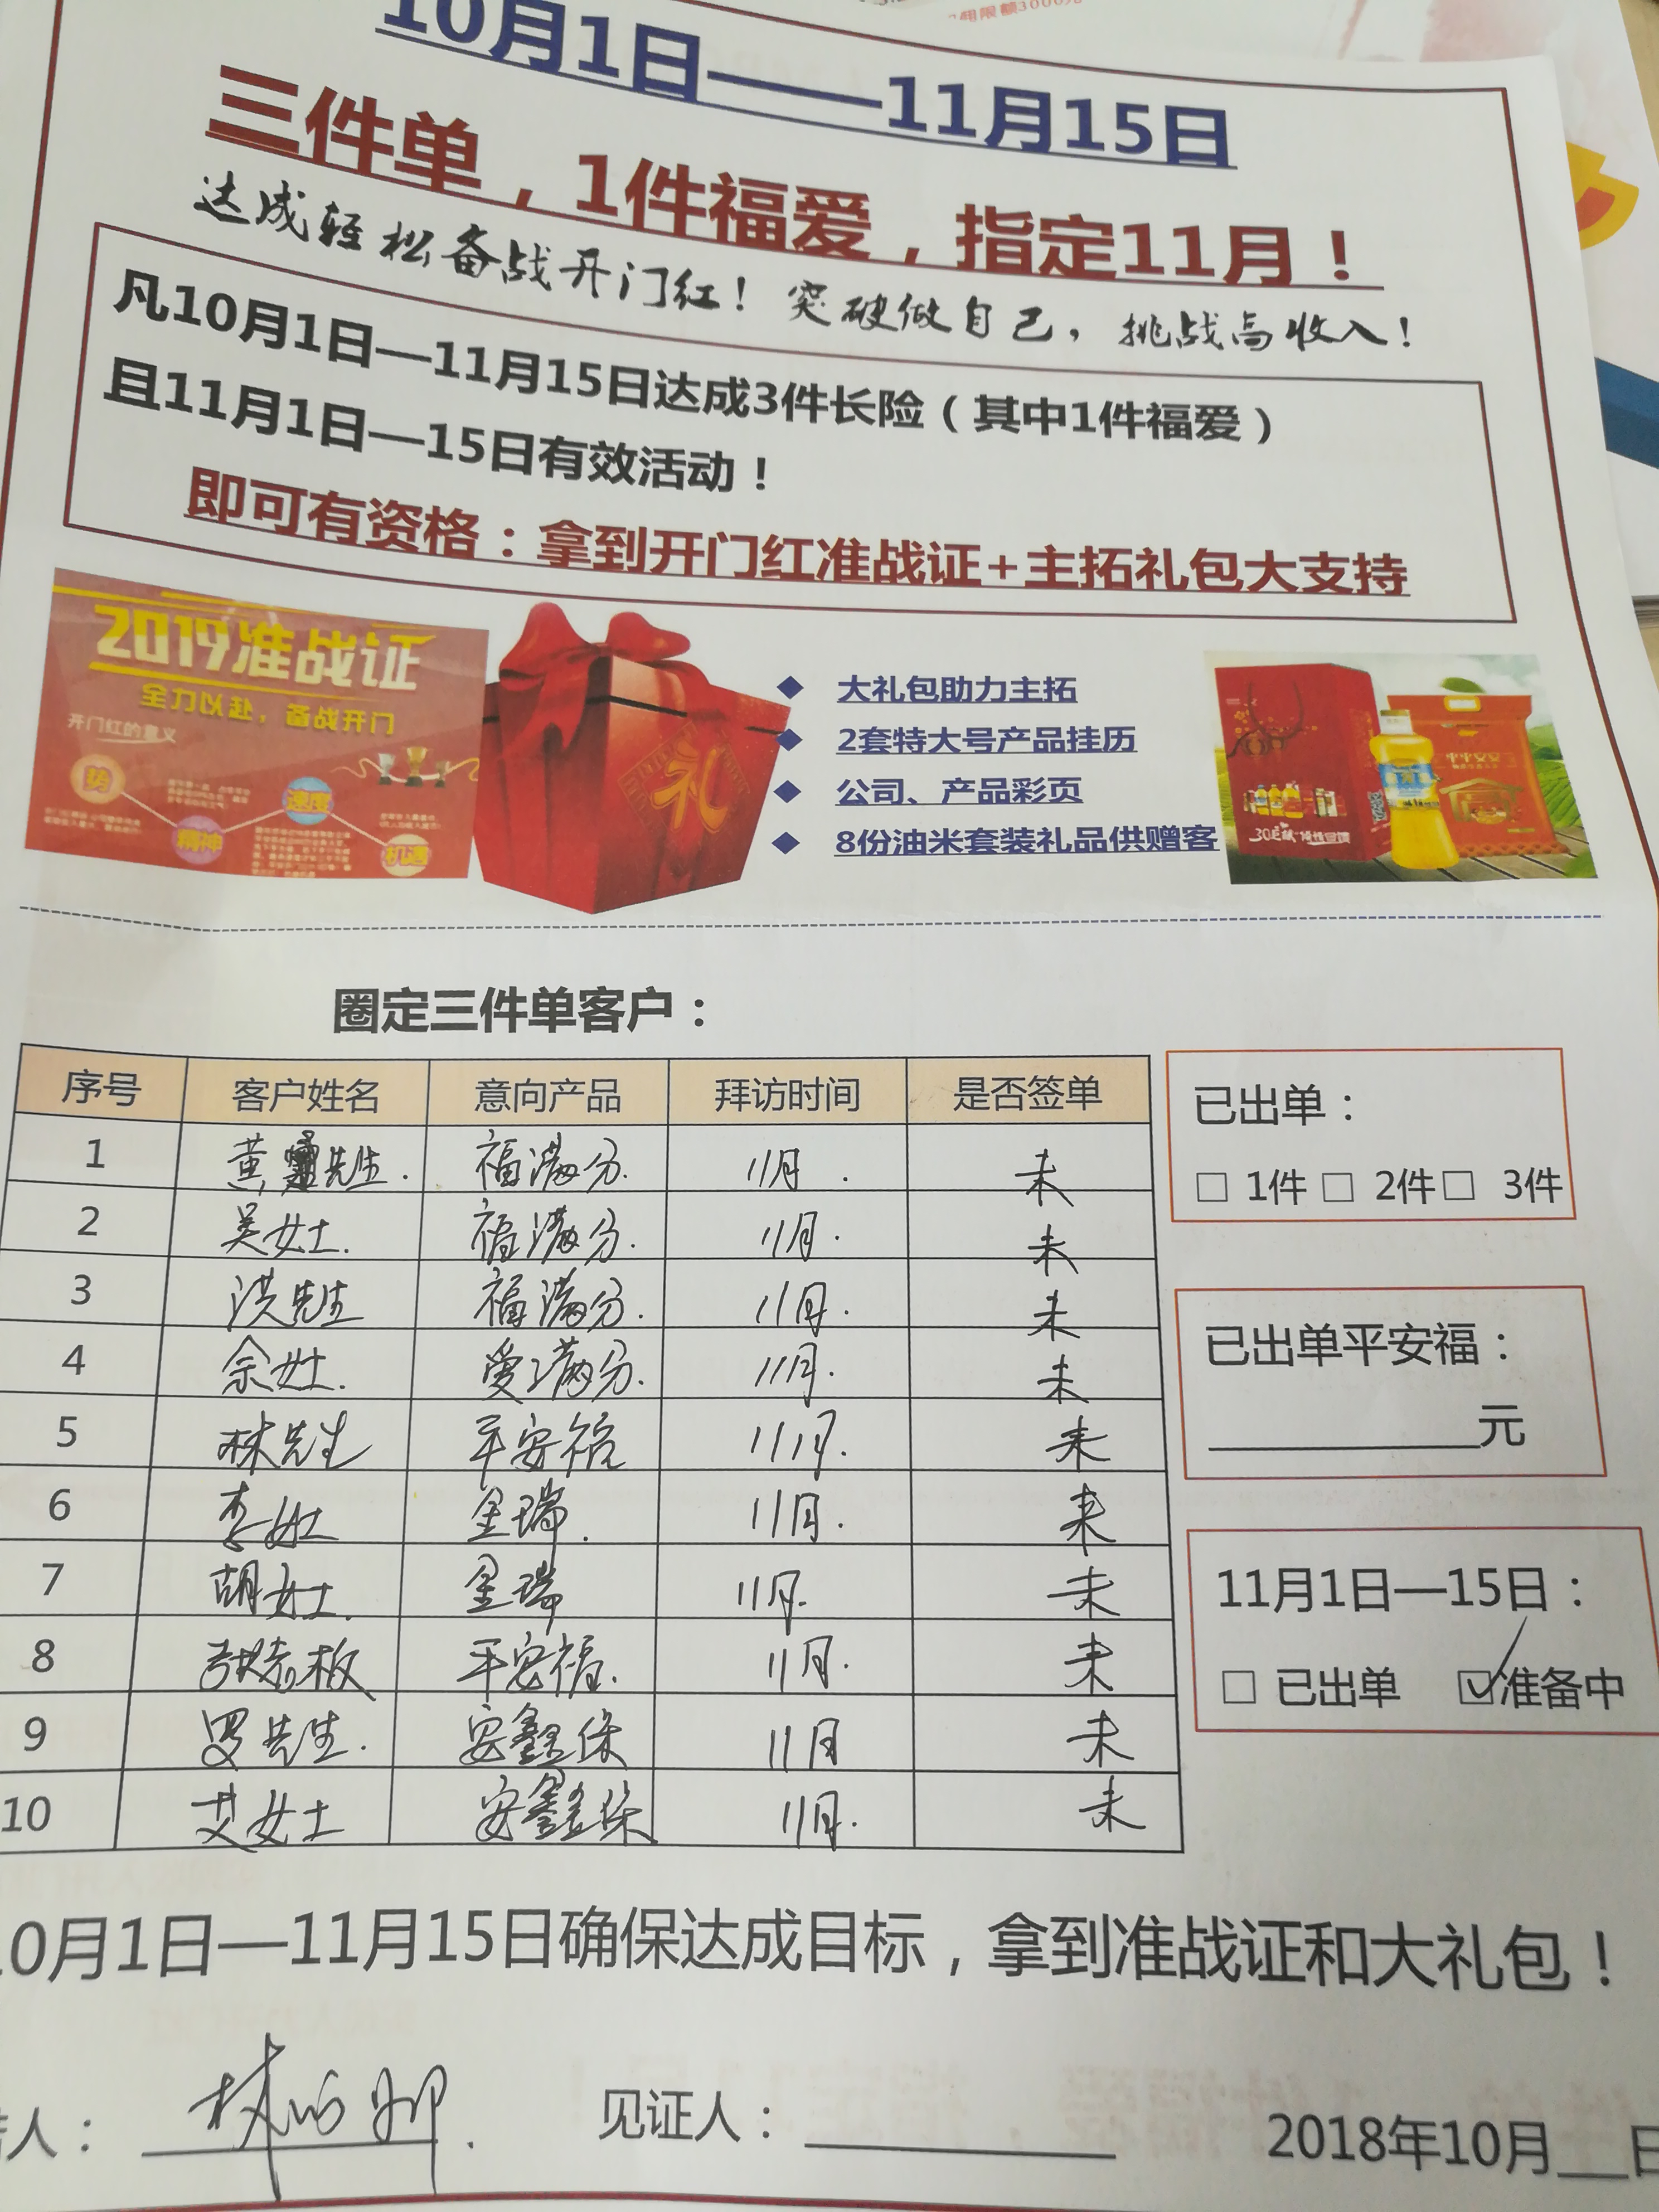 10月1日——11月15日
三件单，1件福爱，指定11月！
达成轻松备战开门红！突破做自己，挑战高收入！
凡10月1日—11月15日达成3件长险（其中1件福爱）
且11月1日—15日有效活动！
即可有资格：拿到开门红准战证+主拓礼包大支持
2019准战证
全力以赴，备战开门
开门红的意义
势
精神
速度
机遇
礼
大礼包助力主拓
2套特大号产品挂历
公司、产品彩页
8份油米套装礼品供赠客
圈定三件单客户：
序号 客户姓名 意向产品 拜访时间 是否签单
1 黄 先生. 福满分. 11月. 未
2 吴女士. 福满分. 11月. 未
3 洪先生 福满分. 11月. 未
4 余女士. 爱满分. 11月. 未
5 林先生 平安福 11月. 未
6 李女士 金瑞. 11月. 未
7 胡女士. 金瑞 11月. 未
8 张老板 平安福. 11月. 未
9 罗先生. 安鑫保 11月 未
10 艾女士 安鑫保 11月. 未
已出单：
□ 1件 □ 2件 □ 3件
已出单平安福：
元
11月1日—15日：
□ 已出单 ☑准备中
10月1日—11月15日确保达成目标，拿到准战证和大礼包！
人： 林 见证人：
2018年10月 日